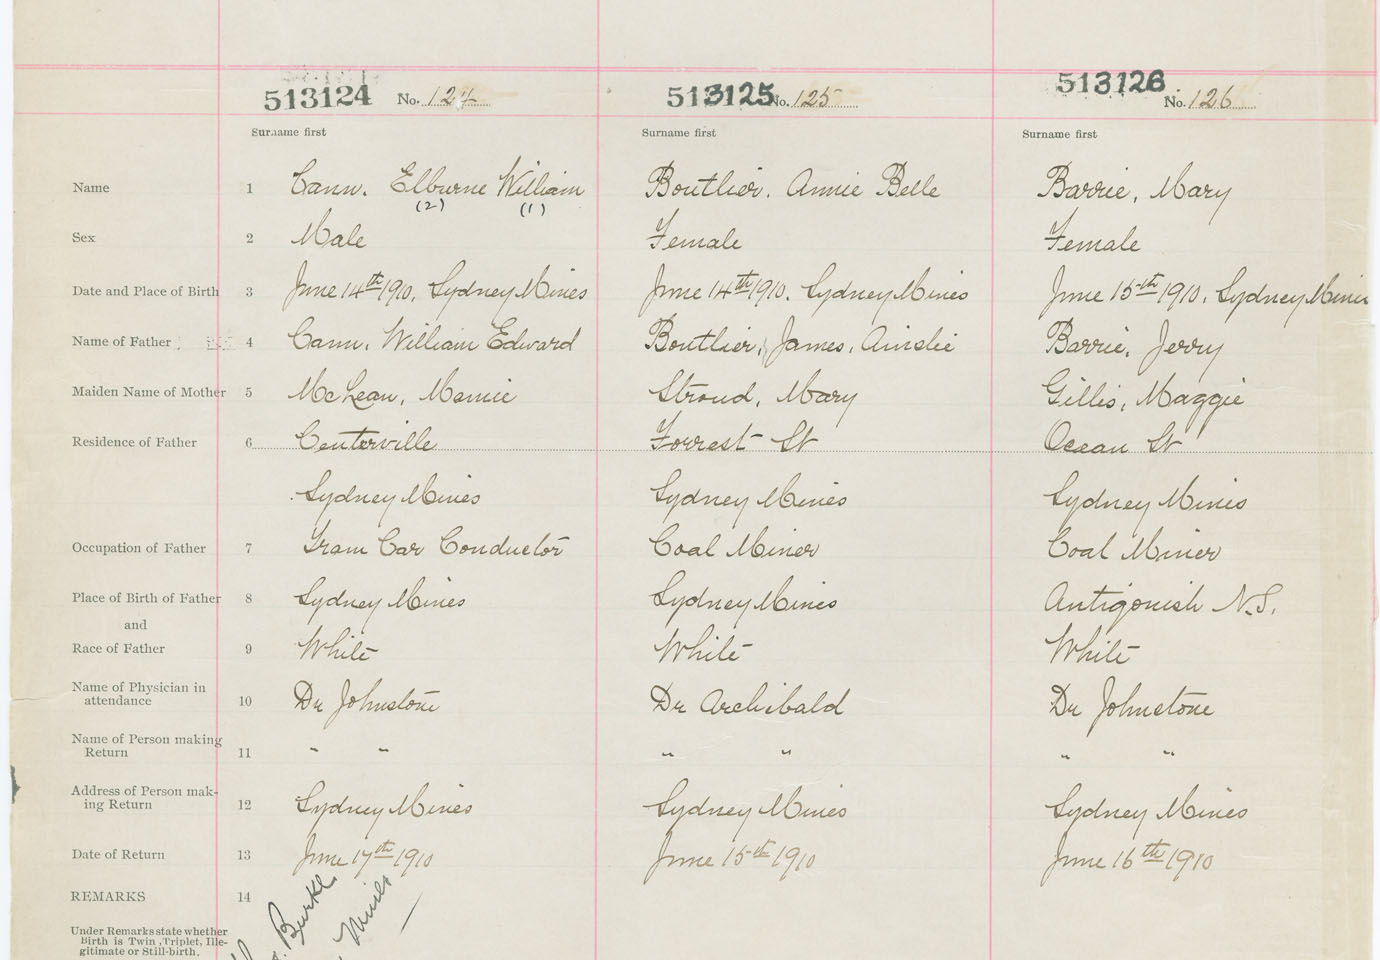 513124 No. 124 513125 No. 125 513126 No. 126
Surname first Surname first Surname first
Name 1 Cann, Elburne William Boutlier, Annie Belle Barrie, Mary
(2) (1)
Sex 2 Male Female Female
Date and Place of Birth 3 June 14th 1910, Sydney Mines June 14th 1910, Sydney Mines June 15th 1910, Sydney Mines
Name of Father 4 Cann, William Edward Boutlier, James, Ainslie Barrie, Jerry
Maiden Name of Mother 5 McLean, Mamie Stroud, Mary Gillis, Maggie
Residence of Father 6 Centerville Forrest St Ocean St
Sydney Mines Sydney Mines Sydney Mines
Occupation of Father 7 Tram Car Conductor Coal Miner Coal Miner
Place of Birth of Father 8 Sydney Mines Sydney Mines Antigonish N.S.
and
Race of Father 9 White White White
Name of Physician in
attendance 10 Dr Johnstone Dr Archibald Dr Johnstone
Name of Person making
Return 11 " " " " " "
Address of Person mak-
ing Return 12 Sydney Mines Sydney Mines Sydney Mines
Date of Return 13 June 17th 1910 June 15th 1910 June 16th 1910
REMARKS 14
Burke
Mines
Under Remarks state whether
Birth is Twin, Triplet, Ille-
gitimate or Still-birth.